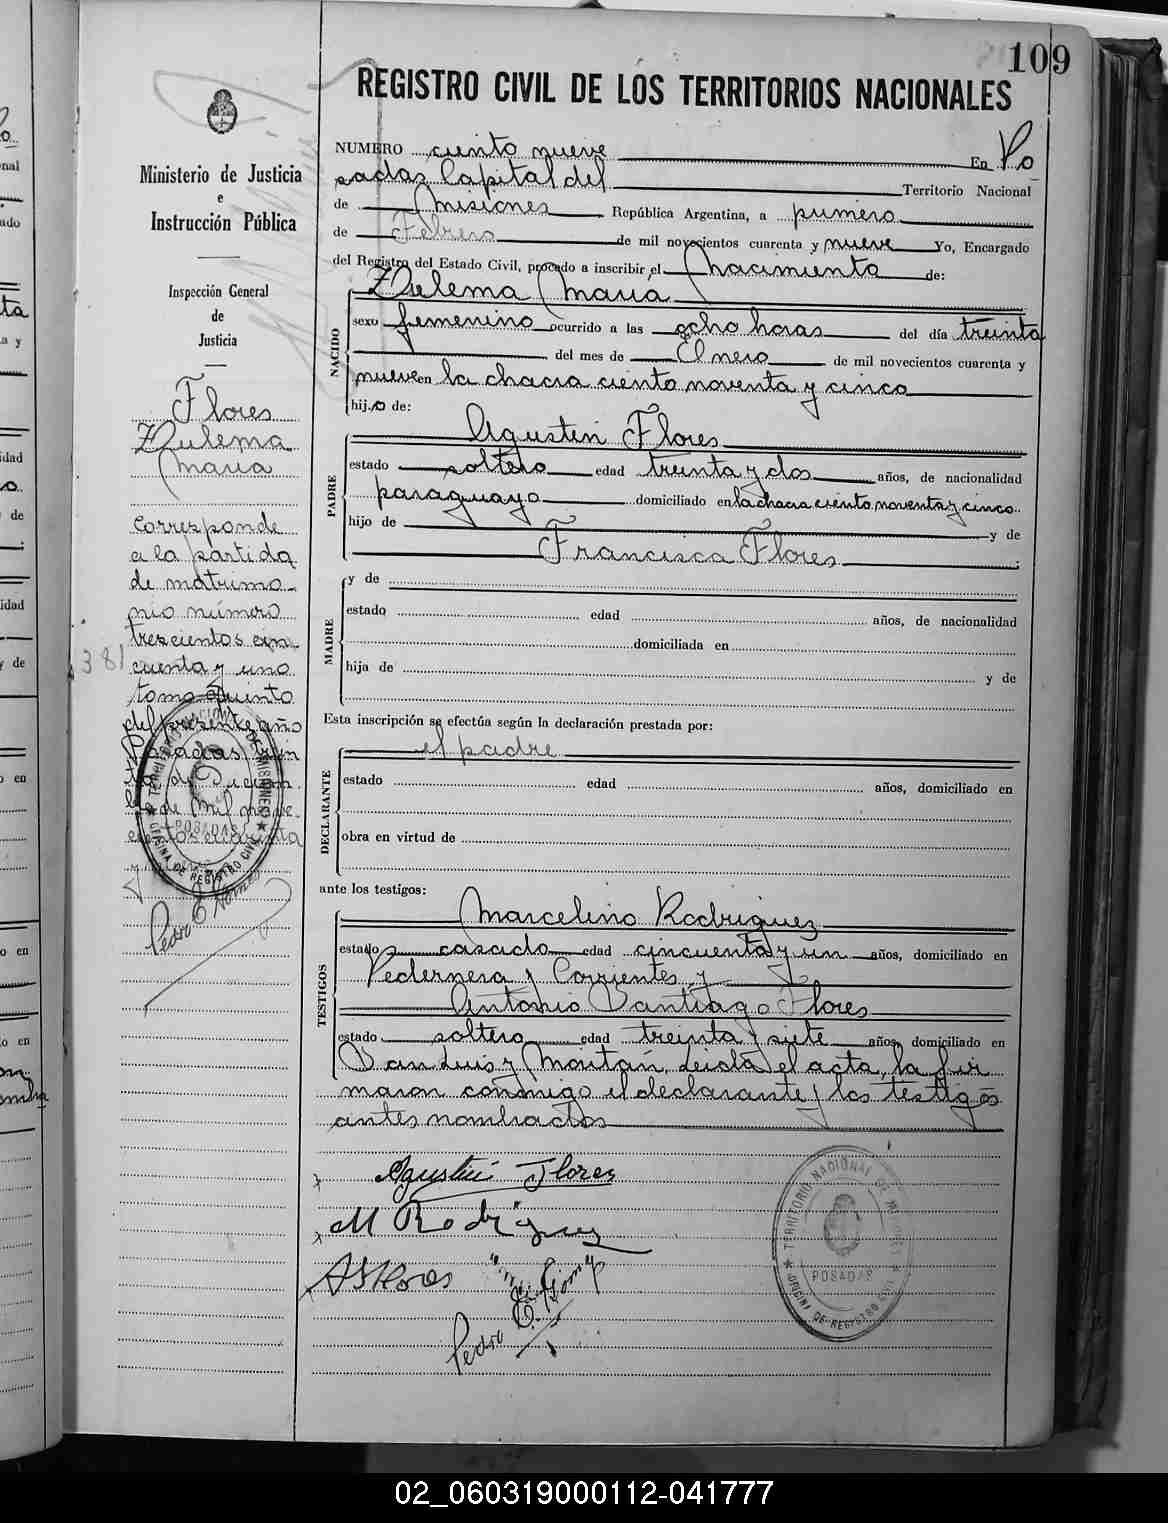 109
REGISTRO CIVIL DE LOS TERRITORIOS NACIONALES
Ministerio de Justicia
e
Instrucción Pública
Inspección General
de
Justicia
Flores
Zulema
Maria
Corresponde
a la partida
de matrimo-
nio número
trescientos cin-
381 cuenta y uno
tomo quinto
del presente año
Posadas,
de Diciem-
bre de mil nove-
cientos cuarenta
y
Pedro E. Gomez
NUMERO ciento nueve En Po
sadas Capital del Territorio Nacional
de Misiones República Argentina, a primero
de Febrero de mil novecientos cuarenta y nueve Yo, Encargado
del Registro del Estado Civil, procedo a inscribir el nacimiento de:
NACIDO
Zulema Maria
sexo femenino ocurrido a las ocho horas del día treinta
del mes de Enero de mil novecientos cuarenta y
nueve en la chacra ciento noventa y cinco
hij.o de:
PADRE
Agustin Flores
estado soltero edad treinta y dos años, de nacionalidad
paraguayo domiciliado en la chacra ciento noventa y cinco
hijo de y de
Francisca Flores
MADRE
y de
estado edad años, de nacionalidad
domiciliada en
hija de y de
Esta inscripción se efectúa según la declaración prestada por:
DECLARANTE
el padre
estado edad años, domiciliado en
obra en virtud de
ante los testigos:
TESTIGOS
Marcelino Rodriguez
estado casado edad cincuenta y un años, domiciliado en
Pedernera y Corrientes y
Antonio Santiago Flores
estado soltero edad treinta y siete años, domiciliado en
San Luis y Moritán, leida el acta, la fir
maron conmigo el declarante y los testigos
antes nombrados
Agustin Flores
M Rodriguez
AS Flores
Pedro E. Gomez
TERRITORIO NACIONAL DE MISIONES
POSADAS
OFICINA DE REGISTRO CIVIL
TERRITORIO NACIONAL DE MISIONES
POSADAS
OFICINA DE REGISTRO CIVIL
02_060319000112-041777